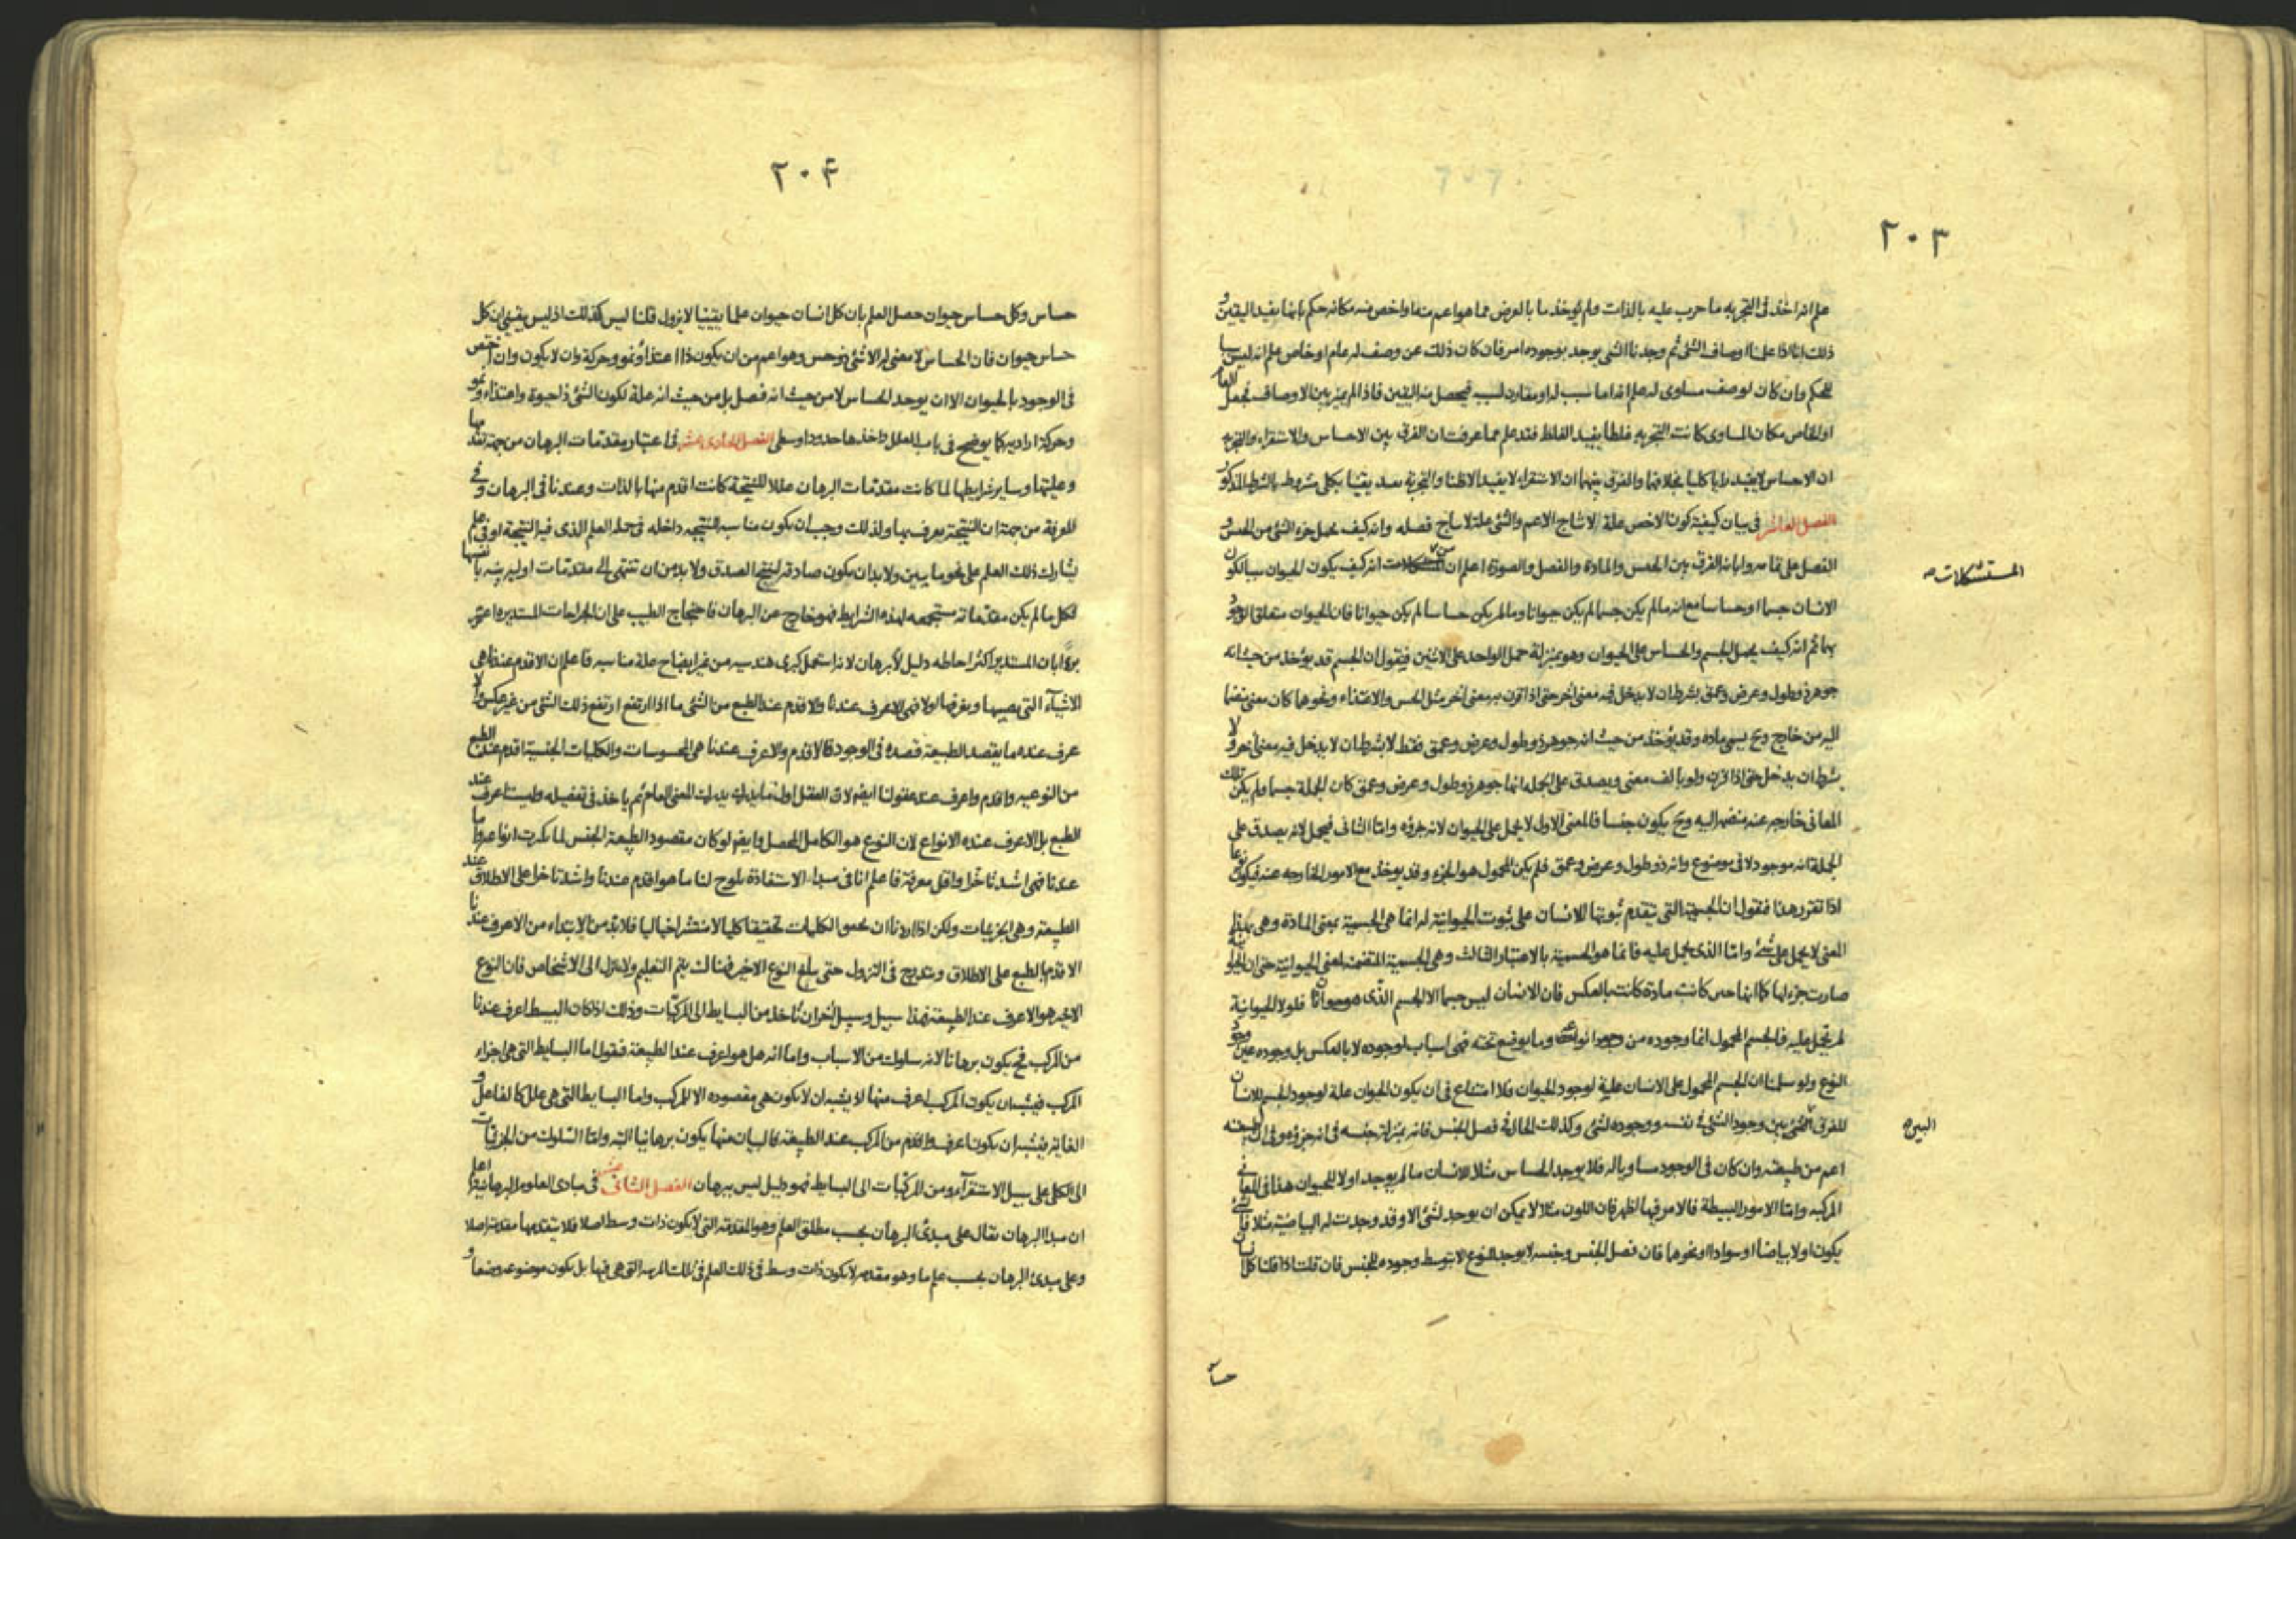 ٢٠٣
علم انه اخذ فى التجربه ما حرب عليه بالذات ولم يوخذ ما بالعرض مما هو اعم منه او اخص منه مكانه حكم بانها يفيد اليقين و
ذلك انا اذا علمنا اوصاف الشئ ثم وجدنا الشئ يوجد بوجوده امر فان كان ذلك عن وصف له عام او خاص علم انه ليس سببا
للحكم وان كان لوصف مساوى له علم انه اما سبب له او مقارن لسبب فيحصل منه اليقين فاذا لم يميز بين الاوصاف فجعل العام
او الخاص مكان المساوى كانت التجربه غلطا يفيد الغلط فقد علم مما عرفت ان الفرق بين الاحساس والاستقراء والتجربه
ان الاحساس لا يفيد رايا كليا بخلافهما والفرق بينهما ان الاستقراء لا يفيد الا ظنا والتجربة تفيد يقينا بكلى مشروط بالشرط المذكور
الفصل العاشر فى بيان كيفية كون الاخص علة لانتاج الاعم والشئ علة لانتاج فصله وانه كيف يحمل جزء الشئ من الجنس و
الفصل على تمامه وابانه الفرق بين الجنس والمادة والفصل والصورة اعلم ان من المشكلات انه كيف يكون الحيوان سببا لكون
المستشكلات صه
الانسان جسما او حساسا مع انه ما لم يكن جسما لم يكن حيوانا وما لم يكن حساسا لم يكن حيوانا فان الحيوان متعلق الوجود
بهما ثم انه كيف يحمل الجسم والحساس على الحيوان وهو بمنزلة حمل الواحد على الاثنين فيقول ان الجسم قد يؤخذ من حيث انه
جوهر ذو طول وعرض وعمق بشرط ان لا يدخل فيه معنى آخر حتى اذا اقترن به معنى آخر مثل الحس والاغتذاء ونحوهما كان معنى منضما
اليه من خارج وح يسمى ماده وقد يؤخذ من حيث انه جوهر ذو طول وعرض وعمق فقط لا بشرط ان لا يدخل فيه معنى آخر ولا
بشرط ان يدخل حتى اذا قرن ولو بالف معنى ويصدق على الجمله انها جوهر ذو طول وعرض وعمق كان الجملة جسما ولم يكن تلك
المعانى خارجه عنه منضمه اليه وح يكون جنسا فالمعنى الاول لا يحمل على الحيوان لانه جزؤه واما الثانى فيحمل لانه يصدق على
الجملة انه موجود لا فى موضوع وانه ذو طول وعرض وعمق فلم يكن المحمول هو الجزء وقد يوخذ مع الامور الخارجه عنه فيكون نوعا
اذا تقرر هذا فنقول ان الجسمية التى يتقدم ثبوتها للانسان على ثبوت الحيوانية له انما هى الجسمية بمعنى المادة وهى بهذا
المعنى لا يحمل على شئ واما الذى يحمل عليه فانما هو الجسمية بالاعتبار الثالث وهى الجسمية المتضمنة لمعنى الحيوانية حتى ان الحيوانية
صارت جزء لها كما انها حين كانت مادة كانت بالعكس فان الانسان ليس جسما الا الجسم الذى هو حيوان فلولا الحيوانية
لم تحمل عليه فالجسم المحمول انما وجوده من وجود انواعه وما يوضع تحته فهى اسباب لوجوده لا بالعكس بل وجوده عين وجود
النوع ولو سلمنا ان الجسم المحمول على الانسان علية لوجود الحيوان فلا امتناع فى ان يكون الحيوان علة لوجود الجسم للانسان
للفرق البين بين وجود الشئ فى نفسه ووجوده لشئ وكذلك الحال فى فصل الجنس فانه بمنزلة جنسه فى انه جزؤه وفى ان طبيعته
البين صه
اعم من طبيعته وان كان فى الوجود مساويا له فلا يوجد الحساس مثلا للانسان ما لم يوجد اولا للحيوان هذا فى المعانى
المركبه واما الامور البسيطة فالامر فيها اظهر فان اللون مثلا لا يمكن ان يوجد لشئ الا وقد وجدت له البياضية مثلا فالشئ
يكون اولا بياضا او سوادا او نحوهما فان فصل الجنس وجنسه لا يوجد للنوع الا بتوسط وجوده للجنس فان قلت اذا قلنا كل انسان
حساس
٢٠۴
حساس وكل حساس حيوان حصل العلم بان كل انسان حيوان علما يقينيا لا يزول قلنا ليس كذلك اذ ليس يقينى ان كل
حساس حيوان فان الحساس لا معنى له الا شئ ذو حس وهو اعم من ان يكون ذا اغتذاء ونمو وحركة وان لا يكون وان اختص
فى الوجود بالحيوان الا ان يوجد الحساس لا من حيث انه فصل بل من حيث انه علة لكون الشئ ذا حيوة واغتذاء ونمو
وحركة ارادية كما يوضح فى باب العلل داخذها حدودا وسطى الفصل الحادى عشر فى اعتبار مقدمات البرهان من جهة تقدمها
وعليتها وساير شرايطها لما كانت مقدمات البرهان عللا للنتيجة كانت اقدم منها بالذات وعندنا فى البرهان وفى
المعرفة من جهة ان النتيجة يعرف بها ولذلك وجب ان يكون مناسبه للنتيجه داخله فى جمله العلم الذى فيه النتيجة او فى علم
يشارك ذلك العلم على نحو ما يبين ولا بد ان يكون صادقه لينتج الصدق ولا بد من ان تنتهى الى مقدمات اوليه بينه بانفسها
فكل ما لم يكن مقدماته مستجمعه لهذه الشرايط فهو خارج عن البرهان فاحتجاج الطبيب على ان الجراحات المستديره اعسر
برءا بان المستدير اكثر احاطه دليل لا برهان لانه استعمل كبرى هندسيه من غير ايضاح علة مناسبه فاعلم ان الاقدم عندنا هى
الاشياء التى نصيبها ونعرفها اولا فهى الاعرف عندنا والاقدم عند الطبع من الشئ ما اذا ارتفع ارتفع ذلك الشئ من غير عكس والا
عرف عنده ما يقصد الطبيعة قصده فى الوجود فالاقدم والاعرف عندنا هى المحسوسات والكليات الجنسية اقدم عند الطبع
من النوعيه واقدم واعرف عند عقولنا ايضا لان العقل اول ما يدرك يدرك المعنى العام ثم ياخذ فى تفصيله وليست اعرف عند
الطبع بل الاعرف عنده الانواع لان النوع هو الكامل المحصل وايضا لو كان مقصود الطبيعة الجنس لما تكثرت انواعه وما
عندنا فهى اشد تاخرا واقل معرفة فاعلم انا فى مبداء الاستفادة يلوح لنا ما هو اقدم عندنا واشد تاخرا على الاطلاق عند
الطبيعة وهى الجزئيات ولكن اذا اردنا ان نحقق الكليات تحقيقا كليا لا منتشرا خياليا فلا بد من الابتداء من الاعرف عندنا
الاقدم بالطبع على الاطلاق ونتدرج فى النزول حتى يبلغ النوع الاخير فهنالك يتم التعليم ولا ينزل الى الاشخاص فان النوع
الاخير هو الاعرف عند الطبيعة فهذا سبيل وسبيل آخر ان ناخذ من البسايط الى المركبات وذلك اذا كان البسيط اعرف عندنا
من المركب فح يكون برهانا لانه سلوك من الاسباب واما انه هل هو اعرف عند الطبيعة فنقول اما البسايط التى هى اجزاء
المركب فيشبه ان يكون المركب اعرف منها لانه يشبه ان لا يكون هى مقصوده الا للمركب واما البسايط التى هى علل كالفاعل و
الغاية فيشبه ان يكون اعرف واقدم من المركب عند الطبيعة فالبيان منها يكون برهانيا البته واما السلوك من الجزئيات
الى الكلى على سبيل الاستقراء ومن المركبات الى البسايط فهو دليل ليس ببرهان الفصل الثانى عشر فى مبادى العلوم البرهانية اعلم
ان مبدا البرهان يقال على مبدئ البرهان بحسب مطلق العلم وهو المقدمة التى لا يكون ذات وسط اصلا فلا يتقدمها مقدمة اصلا
وعلى مبدئ البرهان بحسب علم ما وهو مقدمه لا يكون ذات وسط فى ذلك العلم فى تلك المرتبة التى هى فيها بل يكون موضوعه وضعا و